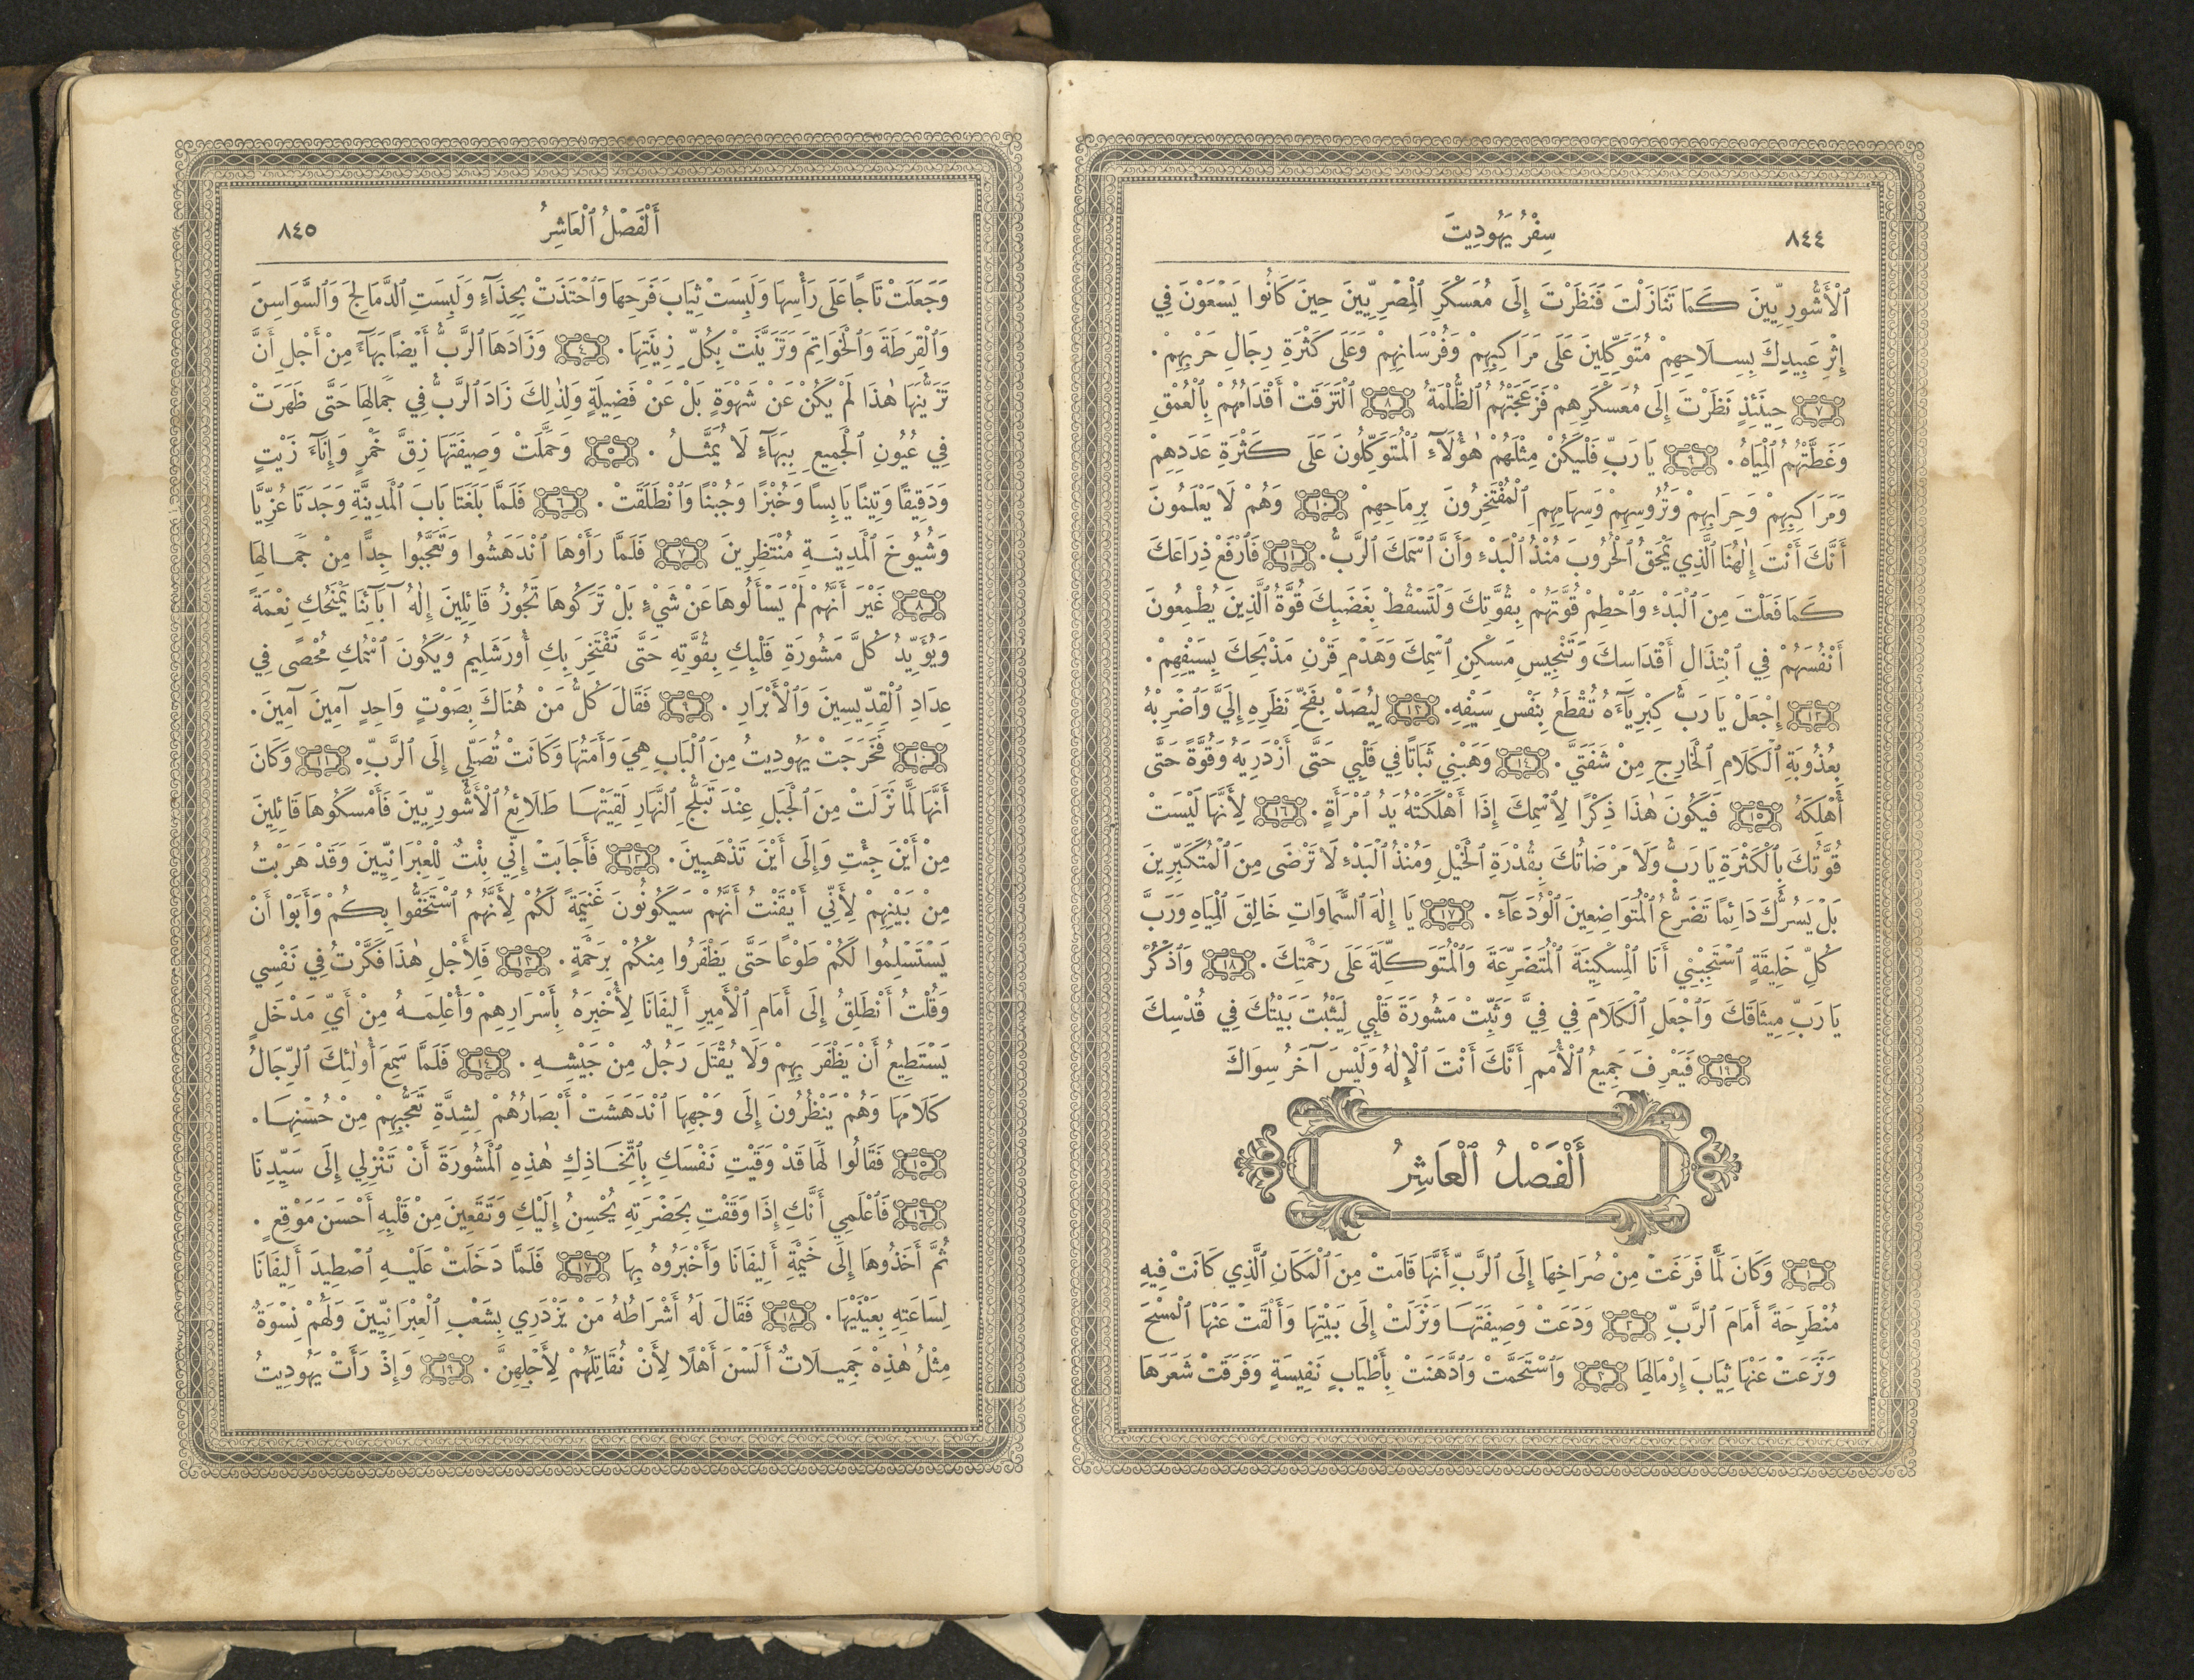 ٨٤٤
سِفْرُ يَهُودِيتَ
ٱلْأَشُّورِيِّينَ كَمَا تَنَازَلْتَ فَنَظَرْتَ إِلَى مُعَسْكَرِ ٱلْمِصْرِيِّينَ حِينَ كَانُوا يَسْعَوْنَ فِي
إِثْرِ عَبِيدِكَ بِسِلَاحِهِمْ مُتَوَكِّلِينَ عَلَى مَرَاكِبِهِمْ وَفُرْسَانِهِمْ وَعَلَى كَثْرَةِ رِجَالِ حَرْبِهِمْ .
٧ حِينَئِذٍ نَظَرْتَ إِلَى مُعَسْكَرِهِمْ فَزَعَجَتْهُمُ ٱلظُّلْمَةُ ٨ ٱلْتَزَقَتْ أَقْدَامُهُمْ بِٱلْعُمْقِ
وَغَطَّتْهُمُ ٱلْمِيَاهُ . ٩ يَا رَبِّ فَلْيَكُنْ مِثْلَهُمْ هٰؤُلَآءِ ٱلْمُتَوَكِّلُونَ عَلَى كَثْرَةِ عَدَدِهِمْ
وَمَرَاكِبِهِمْ وَحِرَابِهِمْ وَتُرُوسِهِمْ وَسِهَامِهِمِ ٱلْمُفْتَخِرُونَ بِرِمَاحِهِمْ ١٠ وَهُمْ لَا يَعْلَمُونَ
أَنَّكَ أَنْتَ إِلٰهُنَا ٱلَّذِي يَمْحَقُ ٱلْحُرُوبَ مُنْذُ ٱلْبَدْءِ وَأَنَّ ٱسْمَكَ ٱلرَّبُّ . ١١ فَٱرْفَعْ ذِرَاعَكَ
كَمَا فَعَلْتَ مِنَ ٱلْبَدْءِ وَٱحْطِمْ قُوَّتَهُمْ بِقُوَّتِكَ وَلْتَسْقُطْ بِغَضَبِكَ قُوَّةُ ٱلَّذِينَ يُطْمِعُونَ
أَنْفُسَهُمْ فِي ٱبْتِذَالِ أَقْدَاسِكَ وَتَنْجِيسِ مَسْكِنِ ٱسْمِكَ وَهَدْمِ قَرْنِ مَذْبَحِكَ بِسَيْفِهِمْ .
١٢ إِجْعَلْ يَا رَبُّ كِبْرِيَآءَهُ تُقْطَعُ بِنَفْسِ سَيْفِهِ . ١٣ لِيُصَدْ بِفَخِّ نَظَرِهِ إِلَيَّ وَٱضْرِبْهُ
بِعُذُوبَةِ ٱلْكَلَامِ ٱلْخَارِجِ مِنْ شَفَتَيَّ . ١٤ وَهَبْنِي ثَبَاتًا فِي قَلْبِي حَتَّى أَزْدَرِيَهُ وَقُوَّةً حَتَّى
أُهْلِكَهُ ١٥ فَيَكُونَ هٰذَا ذِكْرًا لِٱسْمِكَ إِذَا أَهْلَكَتْهُ يَدُ ٱمْرَأَةٍ . ١٦ لِأَنَّهَا لَيْسَتْ
قُوَّتُكَ بِٱلْكَثْرَةِ يَا رَبُّ وَلَا مَرْضَاتُكَ بِقُدْرَةِ ٱلْخَيْلِ وَمُنْذُ ٱلْبَدْءِ لَا تَرْضَى مِنَ ٱلْمُتَكَبِّرِينَ
بَلْ يَسُرُّكَ دَائِمًا تَضَرُّعُ ٱلْمُتَوَاضِعِينَ ٱلْوُدَعَآءِ . ١٧ يَا إِلٰهَ ٱلسَّمَاوَاتِ خَالِقَ ٱلْمِيَاهِ وَرَبَّ
كُلِّ خَلِيقَةٍ ٱسْتَجِبْنِي أَنَا ٱلْمِسْكِينَةَ ٱلْمُتَضَرِّعَةَ وَٱلْمُتَوَكِّلَةَ عَلَى رَحْمَتِكَ . ١٨ وَٱذْكُرْ
يَا رَبِّ مِيثَاقَكَ وَٱجْعَلِ ٱلْكَلَامَ فِي فِيَّ وَثَبِّتْ مَشُورَةَ قَلْبِي لِيَثْبُتَ بَيْتُكَ فِي قُدْسِكَ
١٩ فَيَعْرِفَ جَمِيعُ ٱلْأُمَمِ أَنَّكَ أَنْتَ ٱلْإِلٰهُ وَلَيْسَ آخَرُ سِوَاكَ
أَلْفَصْلُ ٱلْعَاشِرُ
١ وَكَانَ لَمَّا فَرَغَتْ مِنْ صُرَاخِهَا إِلَى ٱلرَّبِّ أَنَّهَا قَامَتْ مِنَ ٱلْمَكَانِ ٱلَّذِي كَانَتْ فِيهِ
مُنْطَرِحَةً أَمَامَ ٱلرَّبِّ ٢ وَدَعَتْ وَصِيفَتَهَا وَنَزَلَتْ إِلَى بَيْتِهَا وَأَلْقَتْ عَنْهَا ٱلْمِسْحَ
وَنَزَعَتْ عَنْهَا ثِيَابَ إِرْمَالِهَا ٣ وَٱسْتَحَمَّتْ وَٱدَّهَنَتْ بِأَطْيَابٍ نَفِيسَةٍ وَفَرَقَتْ شَعَرَهَا
أَلْفَصْلُ ٱلْعَاشِرُ
٨٤٥
وَجَعَلَتْ تَاجًا عَلَى رَأْسِهَا وَلَبِسَتْ ثِيَابَ فَرَحِهَا وَٱحْتَذَتْ بِحِذَآءٍ وَلَبِسَتِ ٱلدَّمَالِجَ وَٱلسَّوَاسِنَ
وَٱلْقِرَطَةَ وَٱلْخَوَاتِمَ وَتَزَيَّنَتْ بِكُلِّ زِينَتِهَا . ٤ وَزَادَهَا ٱلرَّبُّ أَيْضًا بَهَآءً مِنْ أَجْلِ أَنَّ
تَزَيُّنَهَا هٰذَا لَمْ يَكُنْ عَنْ شَهْوَةٍ بَلْ عَنْ فَضِيلَةٍ وَلِذٰلِكَ زَادَ ٱلرَّبُّ فِي جَمَالِهَا حَتَّى ظَهَرَتْ
فِي عُيُونِ ٱلْجَمِيعِ بِبَهَآءٍ لَا يُمَثَّلُ . ٥ وَحَمَّلَتْ وَصِيفَتَهَا زِقَّ خَمْرٍ وَإِنَآءَ زَيْتٍ
وَدَقِيقًا وَتِينًا يَابِسًا وَخُبْزًا وَجُبْنًا وَٱنْطَلَقَتْ . ٦ فَلَمَّا بَلَغَتَا بَابَ ٱلْمَدِينَةِ وَجَدَتَا عُزِّيَّا
وَشُيُوخَ ٱلْمَدِينَةِ مُنْتَظِرِينَ ٧ فَلَمَّا رَأَوْهَا ٱنْدَهَشُوا وَتَعَجَّبُوا جِدًّا مِنْ جَمَالِهَا
٨ غَيْرَ أَنَّهُمْ لَمْ يَسْأَلُوهَا عَنْ شَيْءٍ بَلْ تَرَكُوهَا تَجُوزُ قَائِلِينَ إِلٰهُ آبَآئِنَا يَمْنَحُكِ نِعْمَةً
وَيُؤَيِّدُ كُلَّ مَشُورَةِ قَلْبِكِ بِقُوَّتِهِ حَتَّى تَفْتَخِرَ بِكِ أُورَشَلِيمُ وَيَكُونَ ٱسْمُكِ مُحْصًى فِي
عِدَادِ ٱلْقِدِّيسِينَ وَٱلْأَبْرَارِ . ٩ فَقَالَ كُلُّ مَنْ هُنَاكَ بِصَوْتٍ وَاحِدٍ آمِينَ آمِينَ .
١٠ فَخَرَجَتْ يَهُودِيتُ مِنَ ٱلْبَابِ هِيَ وَأَمَتُهَا وَكَانَتْ تُصَلِّي إِلَى ٱلرَّبِّ . ١١ وَكَانَ
أَنَّهَا لَمَّا نَزَلَتْ مِنَ ٱلْجَبَلِ عِنْدَ تَبَلُّجِ ٱلنَّهَارِ لَقِيَتْهَا طَلَائِعُ ٱلْأَشُّورِيِّينَ فَأَمْسَكُوهَا قَائِلِينَ
مِنْ أَيْنَ جِئْتِ وَإِلَى أَيْنَ تَذْهَبِينَ . ١٢ فَأَجَابَتْ إِنِّي بِنْتٌ لِلْعِبْرَانِيِّينَ وَقَدْ هَرَبْتُ
مِنْ بَيْنِهِمْ لِأَنِّي أَيْقَنْتُ أَنَّهُمْ سَيَكُونُونَ غَنِيمَةً لَكُمْ لِأَنَّهُمُ ٱسْتَخَفُّوا بِكُمْ وَأَبَوْا أَنْ
يَسْتَسْلِمُوا لَكُمْ طَوْعًا حَتَّى يَظْفَرُوا مِنْكُمْ بِرَحْمَةٍ . ١٣ فَلِأَجْلِ هٰذَا فَكَّرْتُ فِي نَفْسِي
وَقُلْتُ أَنْطَلِقُ إِلَى أَمَامِ ٱلْأَمِيرِ أَلِيفَانَا لِأُخْبِرَهُ بِأَسْرَارِهِمْ وَأُعْلِمَهُ مِنْ أَيِّ مَدْخَلٍ
يَسْتَطِيعُ أَنْ يَظْفَرَ بِهِمْ وَلَا يُقْتَلَ رَجُلٌ مِنْ جَيْشِهِ . ١٤ فَلَمَّا سَمِعَ أُولٰئِكَ ٱلرِّجَالُ
كَلَامَهَا وَهُمْ يَنْظُرُونَ إِلَى وَجْهِهَا ٱنْدَهَشَتْ أَبْصَارُهُمْ لِشِدَّةِ تَعَجُّبِهِمْ مِنْ حُسْنِهَا .
١٥ فَقَالُوا لَهَا قَدْ وَقَيْتِ نَفْسَكِ بِٱتِّخَاذِكِ هٰذِهِ ٱلْمَشُورَةَ أَنْ تَنْزِلِي إِلَى سَيِّدِنَا
١٦ فَٱعْلَمِي أَنَّكِ إِذَا وَقَفْتِ بِحَضْرَتِهِ يُحْسِنُ إِلَيْكِ وَتَقَعِينَ مِنْ قَلْبِهِ أَحْسَنَ مَوْقِعٍ .
ثُمَّ أَخَذُوهَا إِلَى خَيْمَةِ أَلِيفَانَا وَأَخْبَرُوهُ بِهَا ١٧ فَلَمَّا دَخَلَتْ عَلَيْهِ ٱصْطِيدَ أَلِيفَانَا
لِسَاعَتِهِ بِعَيْنَيْهَا . ١٨ فَقَالَ لَهُ أَشْرَاطُهُ مَنْ يَزْدَرِي بِشَعْبِ ٱلْعِبْرَانِيِّينَ وَلَهُمْ نِسْوَةٌ
مِثْلُ هٰذِهْ جَمِيلَاتٌ أَلَسْنَ أَهْلًا لِأَنْ نُقَاتِلَهُمْ لِأَجْلِهِنَّ . ١٩ وَإِذْ رَأَتْ يَهُودِيتُ